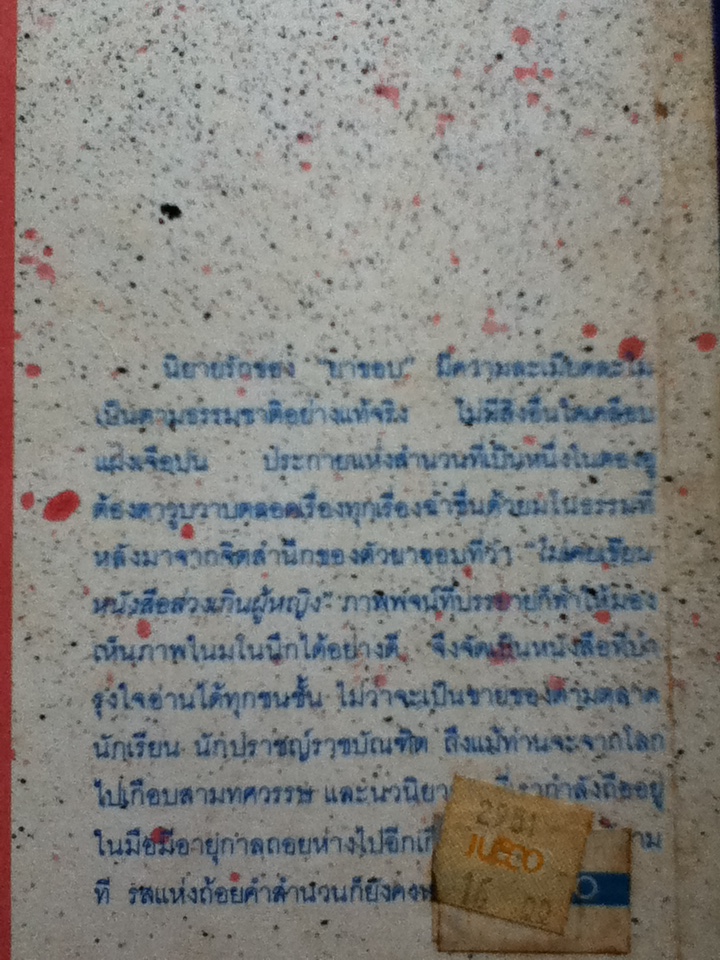 นิยายรักของ "ยาขอบ" มีความละเมียดละไม
เป็นตามธรรมชาติอย่างแท้จริง ไม่มีสิ่งอื่นใดเคลือบ
แฝงเจือปน ประกายแห่งสำนวนที่เป็นหนึ่งในตองอู
ต้องตาวูบวาบตลอดเรื่องทุกเรื่องฉ่ำชื่นด้วยมโนธรรมที่
หลั่งมาจากจิตสำนึกของตัวยาขอบที่ว่า "ไม่เคยเขียน
หนังสือล่วงเกินผู้หญิง" ภาพพจน์ที่บรรยายก็ทำให้มอง
เห็นภาพในมโนนึกได้อย่างดี จึงจัดเป็นหนังสือที่บำ
รุงใจอ่านได้ทุกชนชั้น ไม่ว่าจะเป็นขายของตามตลาด
นักเรียน นักปราชญ์ราชบัณฑิต ถึงแม้ท่านจะจากโลก
ไปเกือบสามทศวรรษ และนวนิยาย ที่เรากำลังถืออยู่
ในมือมีอายุกาลถอยห่างไปอีก ตาม
ที รสแห่งถ้อยคำสำนวนก็ยังคง
2981
JUECO